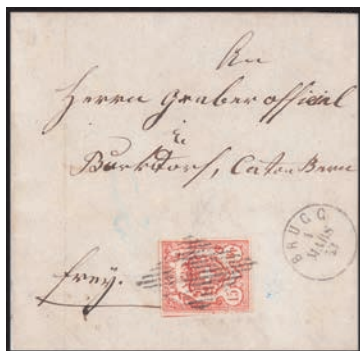 An
Herrn Gruber official
in
Burkdorf, Caton Bern
BRUGG
1
MARS
frey.
15